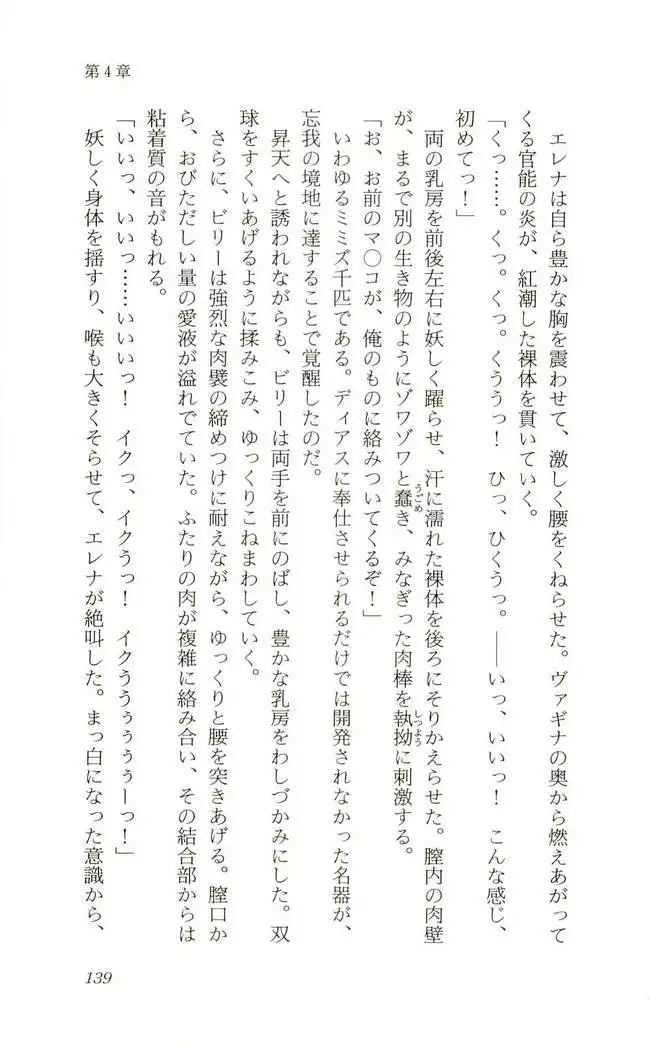 第4章
エレナは自ら豊かな胸を震わせて、激しく腰をくねらせた。ヴァギナの奥から燃えあがって
くる官能の炎が、紅潮した裸体を貫いていく。
「くっ……。くっ。くっ。くううっ！　ひっ、ひくうっ。――いっ、いいっ！　こんな感じ、
初めてっ！」
両の乳房を前後左右に妖しく躍らせ、汗に濡れた裸体を後ろにそりかえらせた。膣内の肉壁
が、まるで別の生き物のようにゾワゾワと蠢き、みなぎった肉棒を執拗に刺激する。
「お、お前のマ〇コが、俺のものに絡みついてくるぞ！」
いわゆるミミズ千匹である。ディアスに奉仕させられるだけでは開発されなかった名器が、
忘我の境地に達することで覚醒したのだ。
昇天へと誘われながらも、ビリーは両手を前にのばし、豊かな乳房をわしづかみにした。双
球をすくいあげるように揉みこみ、ゆっくりこねまわしていく。
さらに、ビリーは強烈な肉襞の締めつけに耐えながら、ゆっくりと腰を突きあげる。膣口か
ら、おびただしい量の愛液が溢れでていた。ふたりの肉が複雑に絡み合い、その結合部からは
粘着質の音がもれる。
「いいっ、いいっ……いいいっ！　イクっ、イクうっ！　イクううぅぅぅーっ！」
妖しく身体を揺すり、喉も大きくそらせて、エレナが絶叫した。まっ白になった意識から、
139